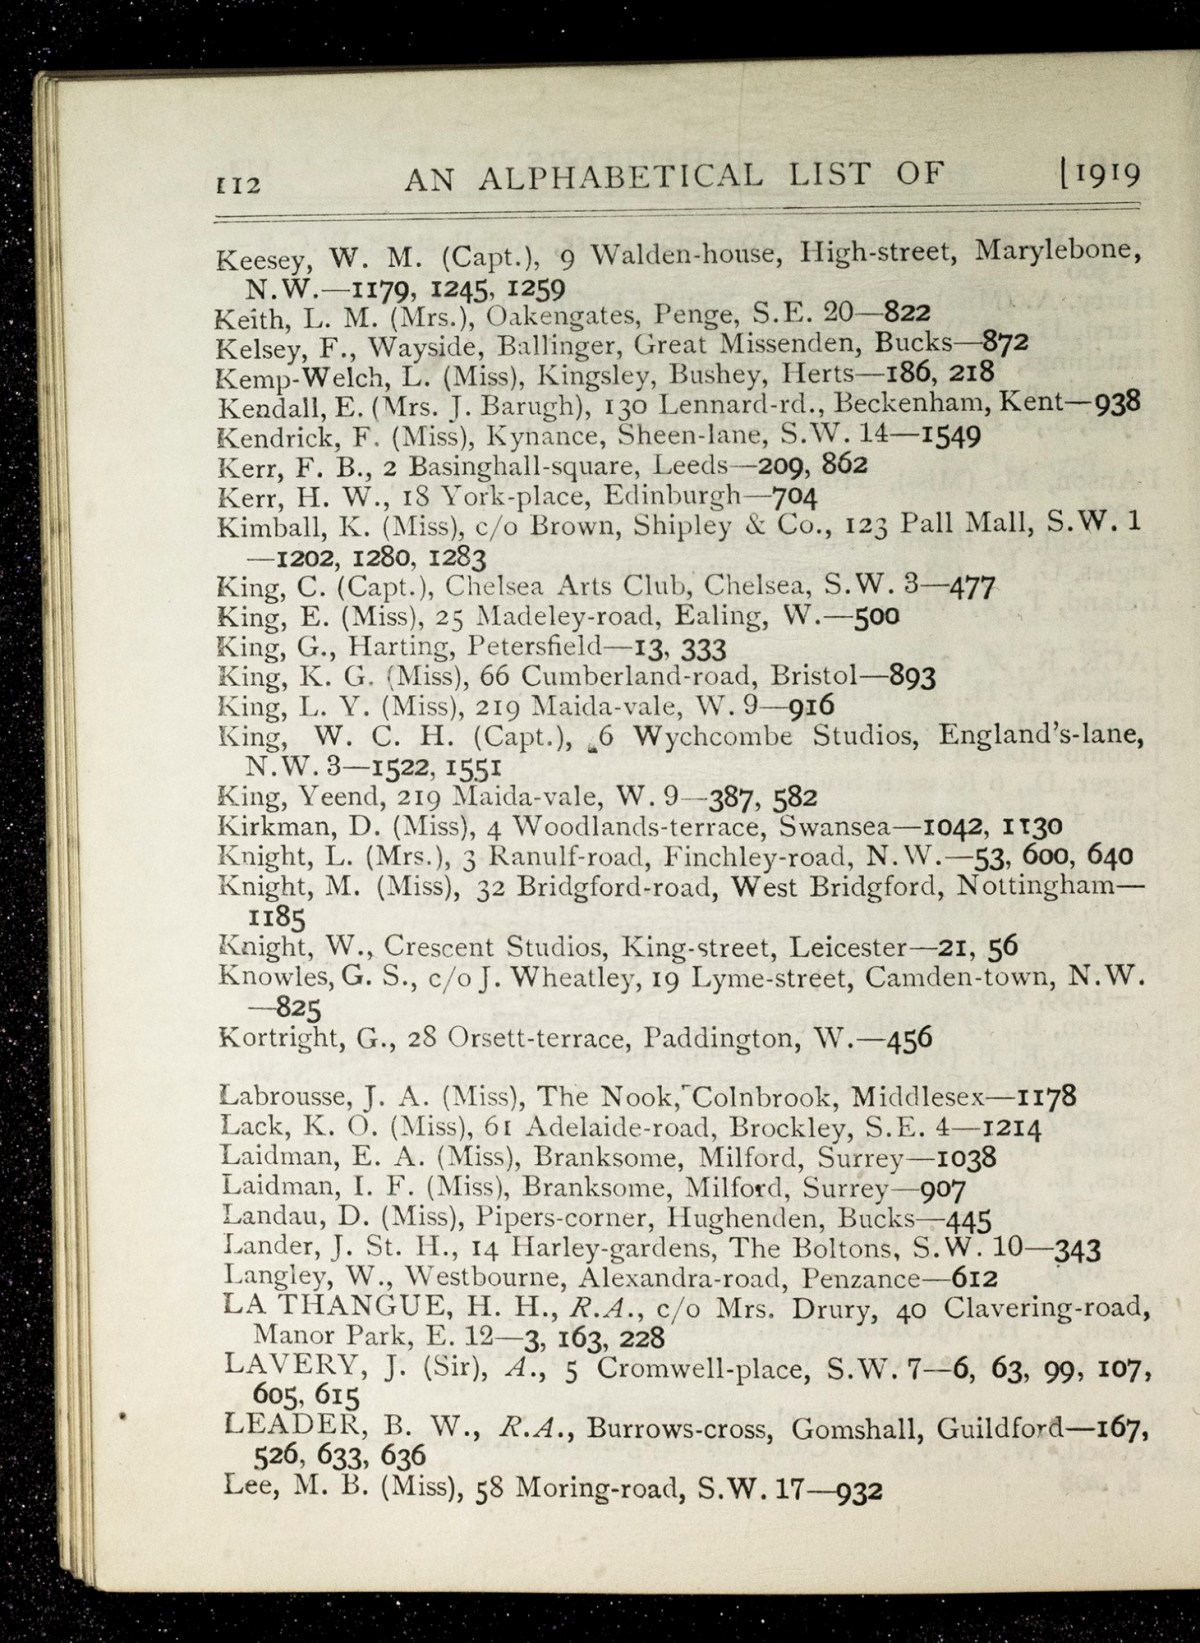 112 AN ALPHABETICAL LIST OF [1919
Keesey, W. M. (Capt.), 9 Walden-house, High-street, Marylebone,
N.W.—1179, 1245, 1259
Keith, L. M. (Mrs.), Oakengates, Penge, S.E. 20—822
Kelsey, F., Wayside, Ballinger, Great Missenden, Bucks—872
Kemp-Welch, L. (Miss), Kingsley, Bushey, Herts—186, 218
Kendall, E. (Mrs. J. Barugh), 130 Lennard-rd., Beckenham, Kent—938
Kendrick, F. (Miss), Kynance, Sheen-lane, S.W. 14—1549
Kerr, F. B., 2 Basinghall-square, Leeds—209, 862
Kerr, H. W., 18 York-place, Edinburgh—704
Kimball, K. (Miss), c/o Brown, Shipley & Co., 123 Pall Mall, S.W. 1
—1202, 1280, 1283
King, C. (Capt.), Chelsea Arts Club, Chelsea, S.W. 3—477
King, E. (Miss), 25 Madeley-road, Ealing, W.—500
King, G., Harting, Petersfield—13, 333
King, K. G. (Miss), 66 Cumberland-road, Bristol—893
King, L. Y. (Miss), 219 Maida-vale, W. 9—916
King, W. C. H. (Capt.), 6 Wychcombe Studios, England's-lane,
N.W. 3—1522, 1551
King, Yeend, 219 Maida-vale, W. 9—387, 582
Kirkman, D. (Miss), 4 Woodlands-terrace, Swansea—1042, 1130
Knight, L. (Mrs.), 3 Ranulf-road, Finchley-road, N.W.—53, 600, 640
Knight, M. (Miss), 32 Bridgford-road, West Bridgford, Nottingham—
1185
Knight, W., Crescent Studios, King-street, Leicester—21, 56
Knowles, G. S., c/o J. Wheatley, 19 Lyme-street, Camden-town, N.W.
—825
Kortright, G., 28 Orsett-terrace, Paddington, W.—456
Labrousse, J. A. (Miss), The Nook, Colnbrook, Middlesex—1178
Lack, K. O. (Miss), 61 Adelaide-road, Brockley, S.E. 4—1214
Laidman, E. A. (Miss), Branksome, Milford, Surrey—1038
Laidman, I. F. (Miss), Branksome, Milford, Surrey—907
Landau, D. (Miss), Pipers-corner, Hughenden, Bucks—445
Lander, J. St. H., 14 Harley-gardens, The Boltons, S.W. 10—343
Langley, W., Westbourne, Alexandra-road, Penzance—612
LA THANGUE, H. H., R.A., c/o Mrs. Drury, 40 Clavering-road,
Manor Park, E. 12—3, 163, 228
LAVERY, J. (Sir), A., 5 Cromwell-place, S.W. 7—6, 63, 99, 107,
605, 615
LEADER, B. W., R.A., Burrows-cross, Gomshall, Guildford—167,
526, 633, 636
Lee, M. B. (Miss), 58 Moring-road, S.W. 17—932